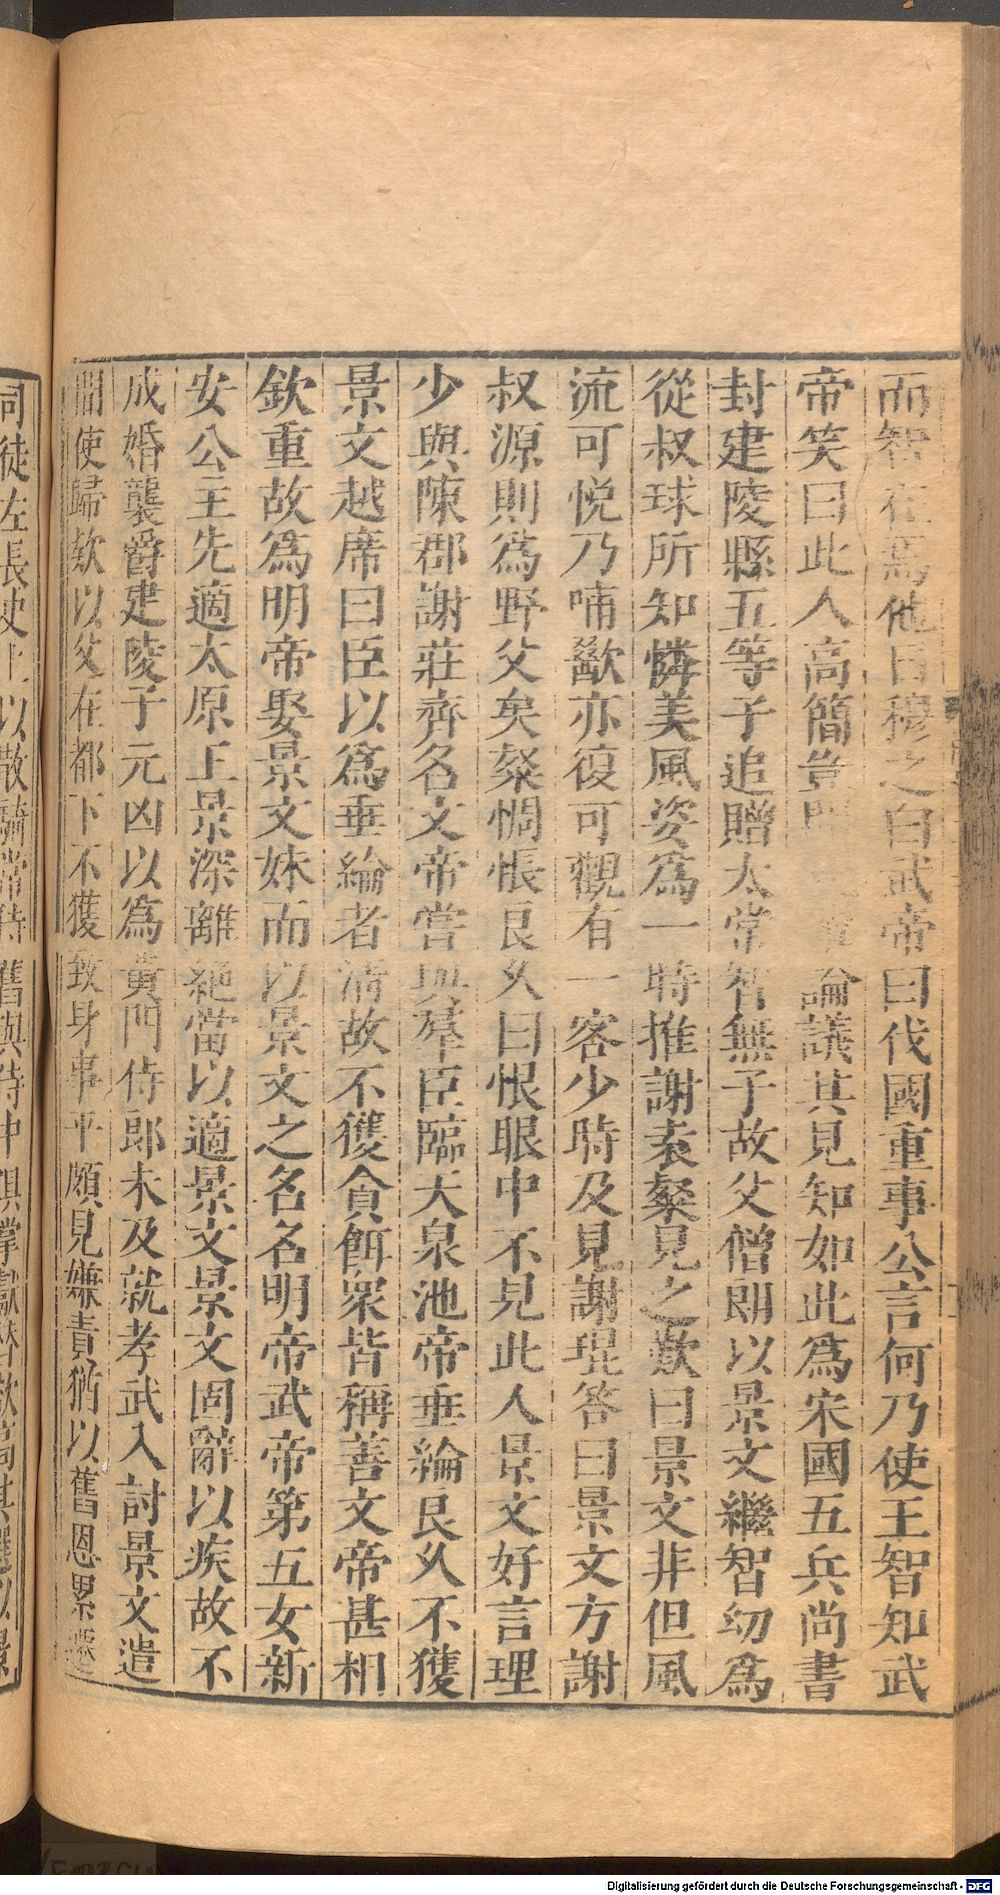 而智在焉他日穆之白武帝曰伐國重事公言何乃使王智知武
帝笑曰此人高簡豈聞論議其見知如此為宋國五兵尚書
封建陵縣五等子追贈太常智無子故父僧朗以景文繼智幼為
從叔球所知憐美風姿為一時推謝袁粲見之歎曰景文非但風
流可悅乃哺歠亦復可觀有一客少時及見謝琨答曰景文方謝
叔源則為野父矣粲惆悵良久曰恨眼中不見此人景文好言理
少與陳郡謝莊齊名文帝嘗與羣臣臨天泉池帝垂綸良久不獲
景文越席曰臣以為垂綸者清故不獲貪餌衆皆稱善文帝甚相
欽重故為明帝娶景文妹而以景文之名名明帝武帝第五女新
安公主先適太原王景深離絕當以適景文景文固辭以疾故不
成婚襲爵建陵子元凶以為黃門侍郎未及就孝武入討景文遣
間使歸欵以父在都下不獲致身事平頗見嫌責猶以舊恩累遷
司徒左長史上以散騎常侍舊與侍中俱掌獻替欲高其選以景
Digitalisierung gefördert durch die Deutsche Forschungsgemeinschaft - DFG